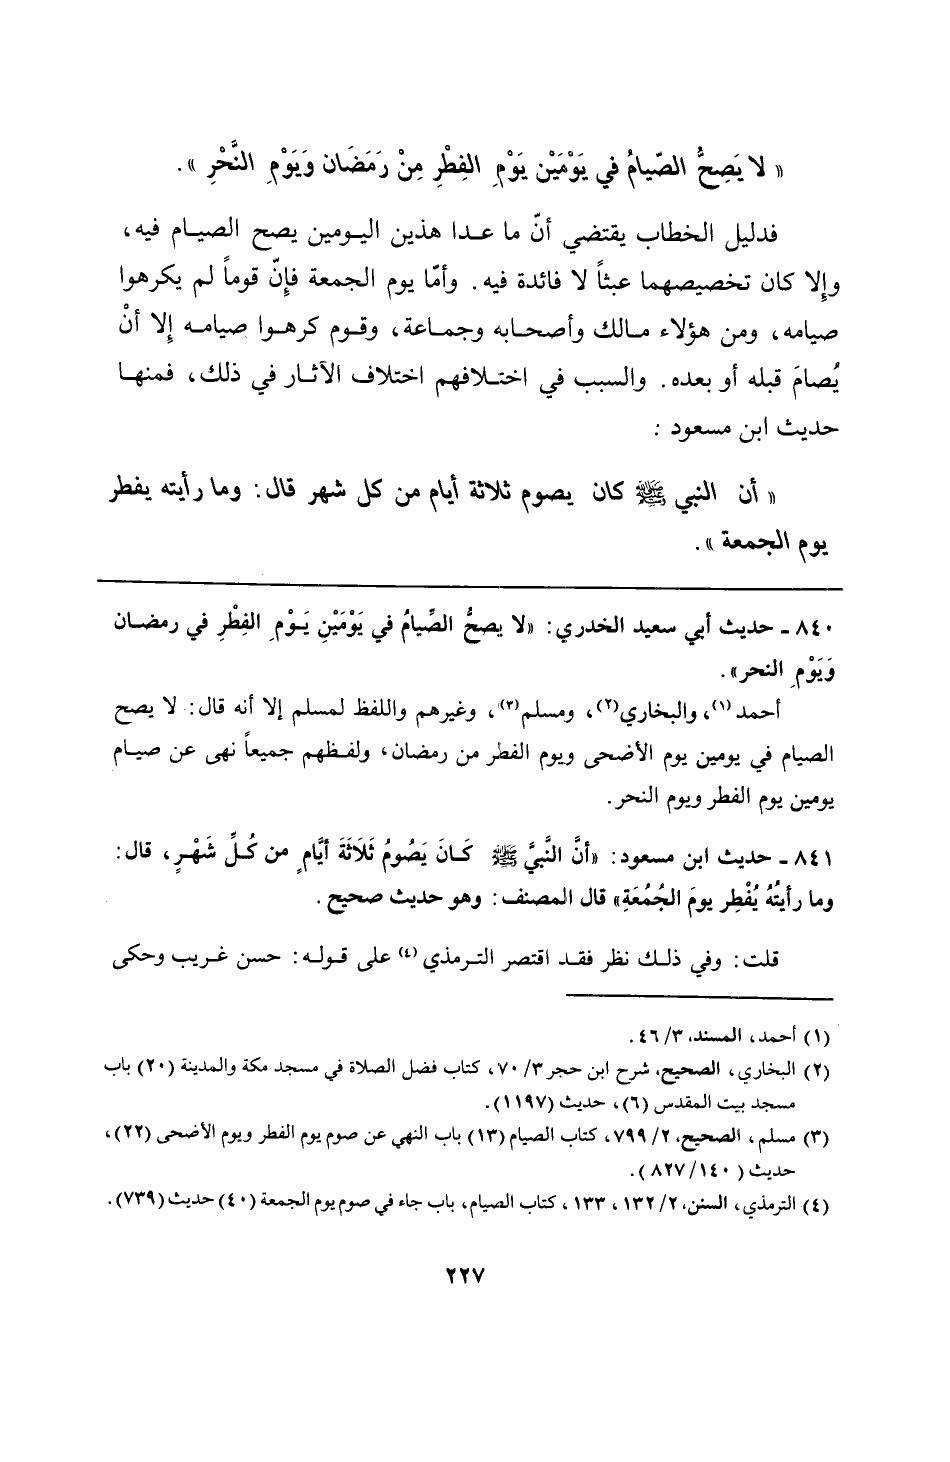 « لا يَصِحُّ الصّيامُ في يَوْمَيْن يَوْمِ الفِطْرِ مِنْ رَمَضَان وَيَوْمِ النَّحْرِ » .
فدليل الخطاب يقتضي أنّ ما عـدا هذين اليـومين يصح الصيـام فيه،
وإلا كان تخصيصهما عبثاً لا فائدة فيه. وأمّا يوم الجمعة فإنّ قوماً لم يكرهوا
صيامه، ومن هؤلاء مـالك وأصحـابه وجمـاعة، وقـوم كرهـوا صيامـه إلا أنْ
يُصامَ قبله أو بعده. والسبب في اختـلافهم اختلاف الآثـار في ذلك، فمنهـا
حديث ابن مسعود :
« أن النبي ﷺ كان يصوم ثلاثة أيام من كل شهر قال: وما رأيته يفطر
يوم الجمعة » .
٨٤٠ - حديث أبي سعيد الخدري: «لا يصحُّ الصِّيامُ في يَوْمَيْنِ يَـوْمِ الفِطْرِ في رمضـان
وَيَوْمِ النحر» .
أحمد (١)، والبخاري(٢)، ومسلم(٣)، وغيرهم واللفظ لمسلم إلا أنه قال: لا يصح
الصيام في يومين يوم الأضحى ويوم الفطر من رمضان، ولفـظهم جميعـاً نهى عن صيـام
يومين يوم الفطر ويوم النحر.
٨٤١ - حديث ابن مسعود: «أنَّ النَّبيَّ ﷺ كَـانَ يَصُومُ ثَلَاثَةَ أيَّامٍ من كُـلِّ شَهْـرٍ، قال:
وما رأيتُهُ يُفْطِر يومَ الجُمُعَةِ» قال المصنف: وهو حديث صحيح .
قلت: وفي ذلـك نظر فقـد اقتصر التـرمذي (٤) على قـولـه: حسن غـريب وحكى
(١) أحمد، المسند، ٣/ ٤٦ .
(٢) البخاري، الصحيح، شرح ابن حجر ٣/ ٧٠، كتاب فضل الصلاة في مسجد مكة والمدينة (٢٠) باب
مسجد بيت المقدس (٦)، حديث (١١٩٧).
(٣) مسلم، الصحيح، ٢/ ٧٩٩، كتاب الصيام (١٣) باب النهي عن صوم يوم الفطر ويوم الأضحى (٢٢)،
حديث ( ١٤٠/ ٨٢٧ ).
(٤) الترمذي، السنن، ٢/ ١٣٢ ، ١٣٣ ، كتاب الصيام، باب جاء في صوم يوم الجمعة (٤٠) حديث (٧٣٩).
٢٢٧